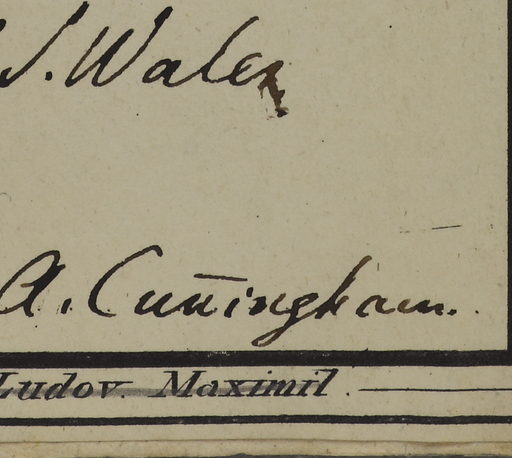 S. Wales
A. Cuñingham.
Ludov. Maximil.